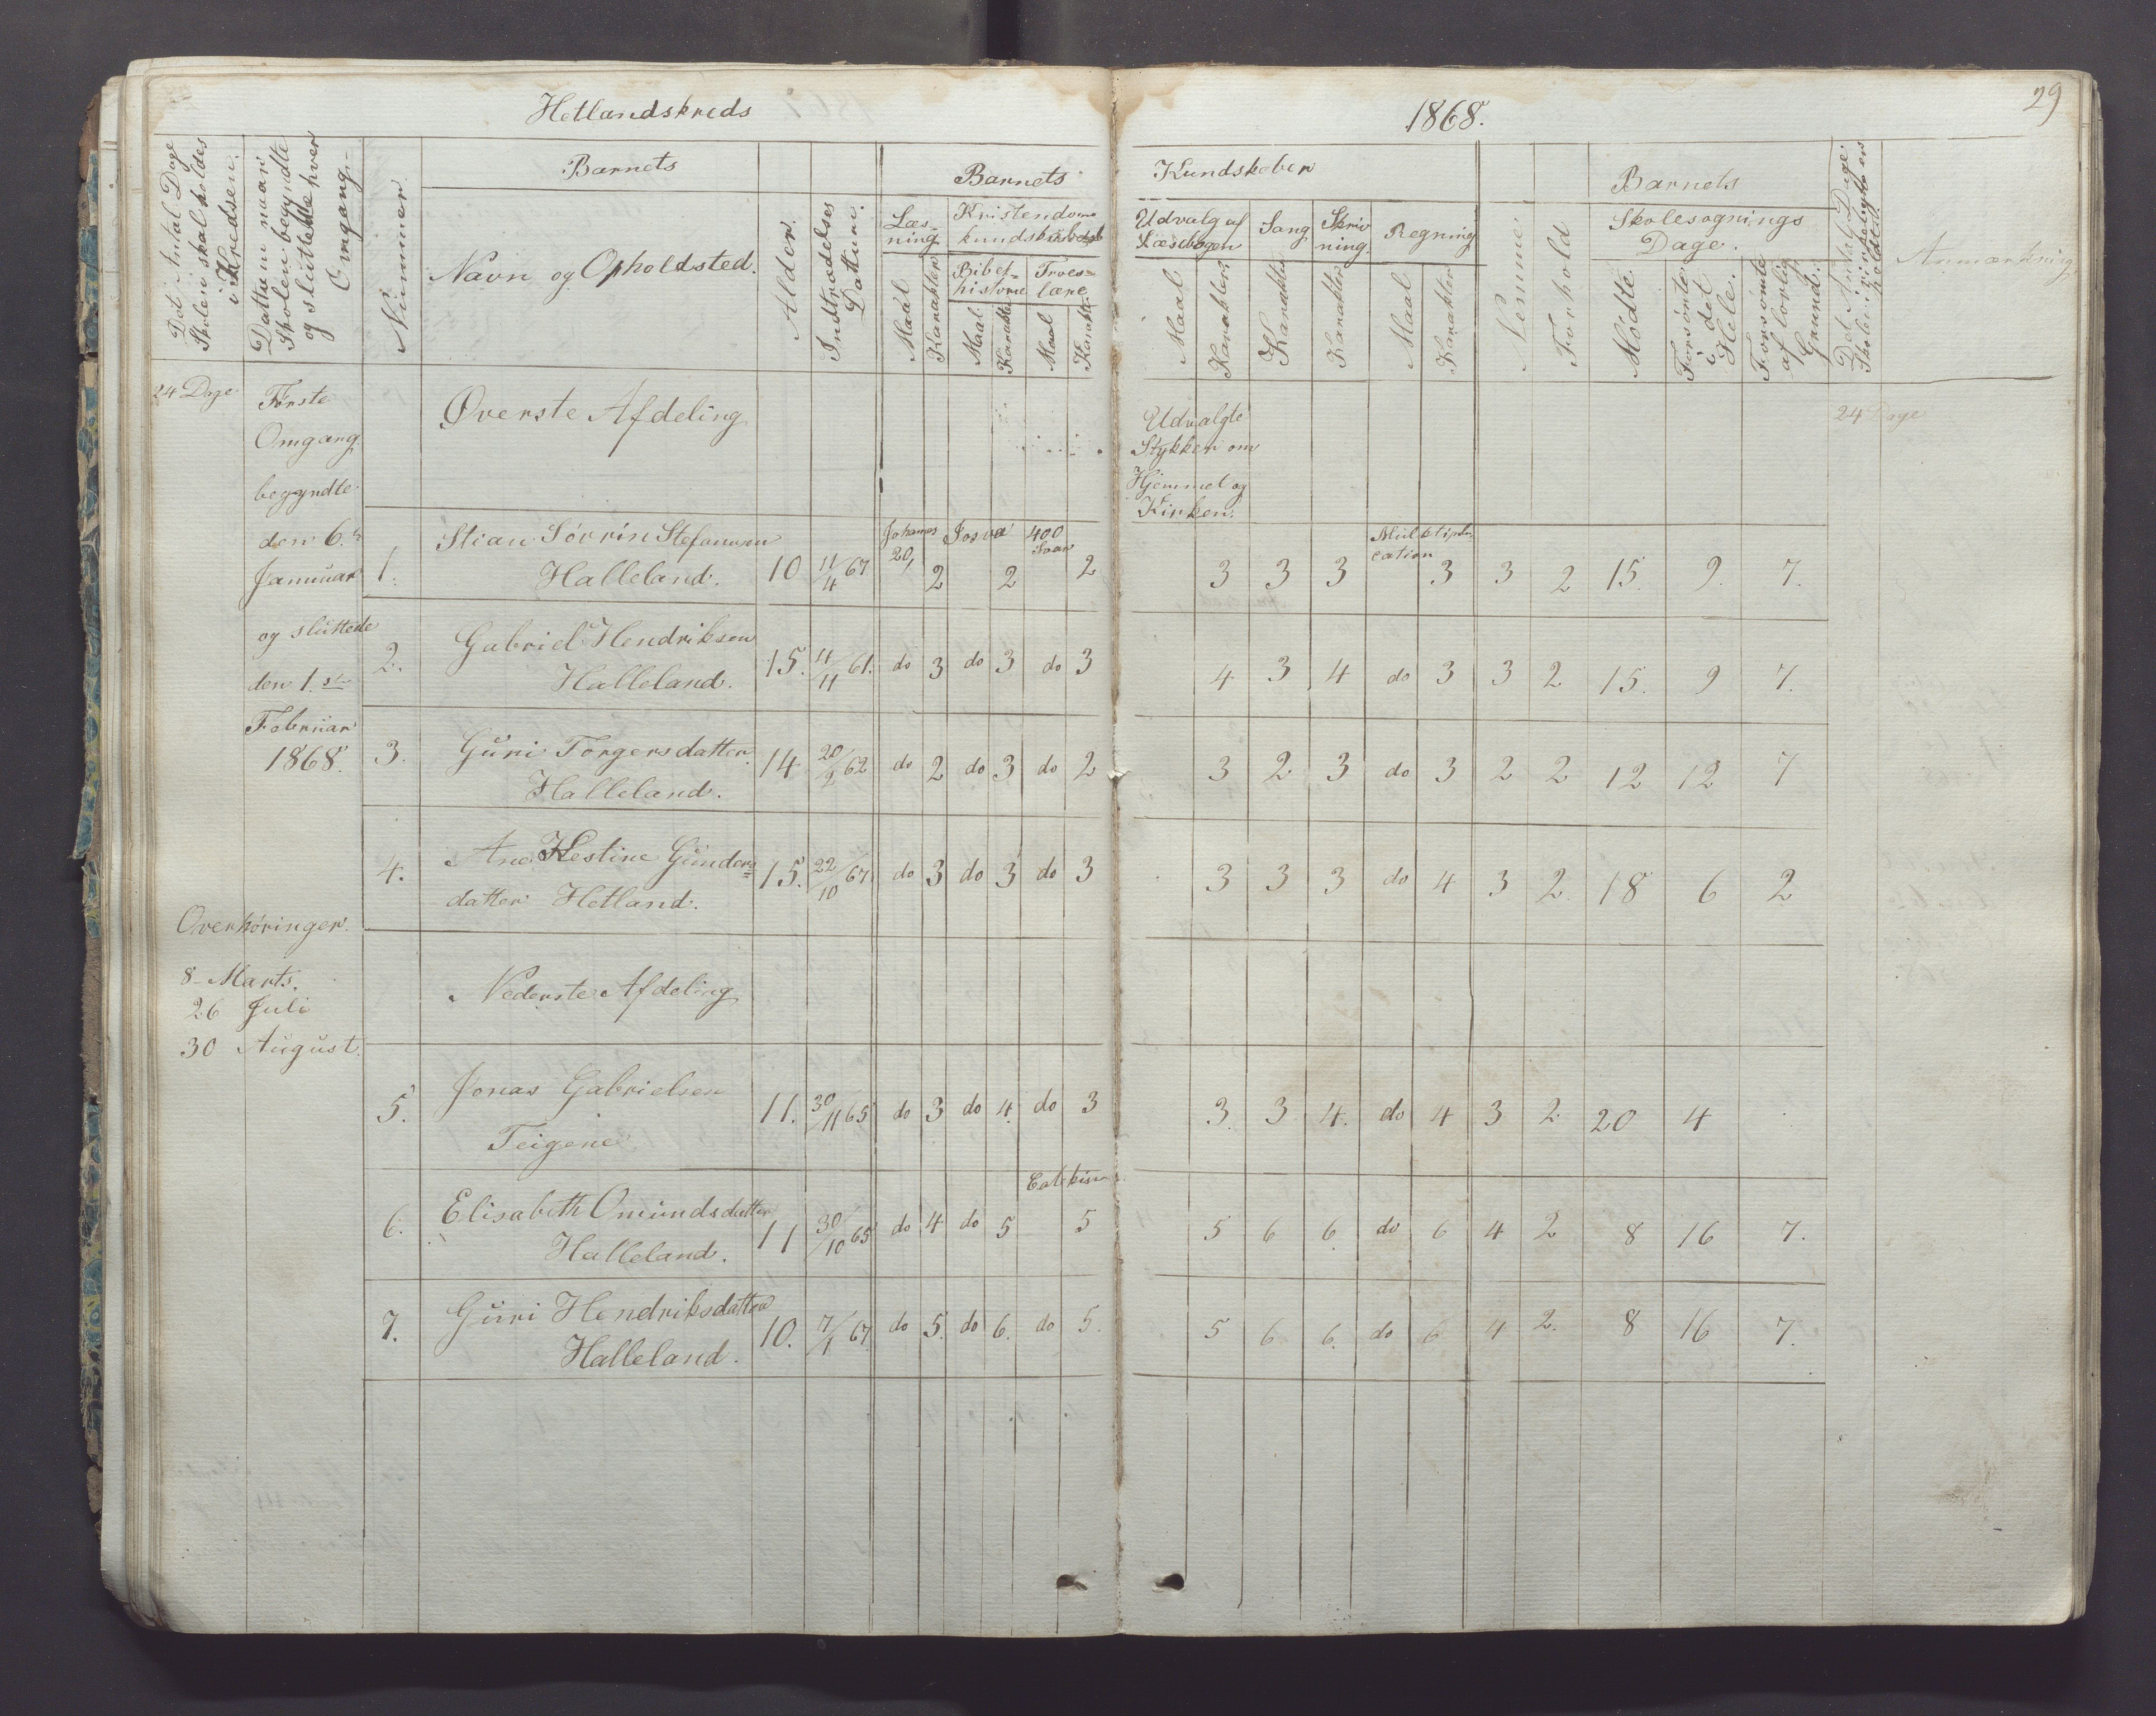 Hetlandskreds
1868.
29
Det Antal Dage
Skolen skal holdes
i Kredsen.
Datum naar
Skolen begyndte
og sluttede hver
Omgang.
Nummer
Barnets
Navn og Opholdsted.
Alder.
Indtrædelses
Datum.
Barnets
Kundskaber
Læs-
ning
Maal
Karakter
Kristendoms
kundskab
Bibel-
historie
Maal
Karakter
Troes-
lære
Maal
Karakter
Udvalg af
Læsebogen
Maal
Karakter
Sang
Karakter
Skriv
ning.
Karakter
Regning
Maal
Karakter
Nemme
Forhold
Barnets
Skolesøgnings
Dage.
Mødte
Forsømte
i det
Hele.
Forsømte
af lovlig
Grund.
Det Antal Dage
Skolen i
holdt.
Anmærkning
24 Dage
Første
Omgang
begyndte
den 6.
Januar
og sluttede
den 1.ste
Februar
1868.
Øverste Afdeling
Udvalgte
Stykker om
Hjemmet og
Kirken.
24 Dage
1. Stian Sørrin Stefansen
Halleland. 10 11/4 67 Johannes 20, 2 Josva 2 400 Svar 2 3 3 3 Multipli-
cation 3 3 2 15. 9. 7.
2. Gabriel Hendriksen
Halleland. 15. 4/11 61. do 3 do 3 do 3 4 3 4 do 3 3 2 15. 9 7.
3. Guri Torgersdatter
Halleland. 14 20/2 62 do 2 do 3 do 2 3 2 3 do 3 2 2 12 12 7
4. Ane Hestine Gunders=
datter Hetland. 15. 22/10 67. do 3 do 3 do 3 3 3 3 do 4 3 2. 18 6 2
Overhøringer.
8 Marts.
26 Juli
30 August.
Nederste Afdeling
5. Jonas Gabrielsen
Teigene 11. 30/11 65 do 3 do 4. do 3 3. 3 4. do 4 3 2 20 4
6. Elisabeth Omundsdatter
Halleland. 11 30/10 65 do 4 do 5 Catekism 5 5 6 6. do 6 4 2 8 16 7.
7. Guri Hendriksdatter
Halleland. 10. 7/1 67. do 5. do 6. do 5. 5 6 6. do 6 4 2. 8 16 7.